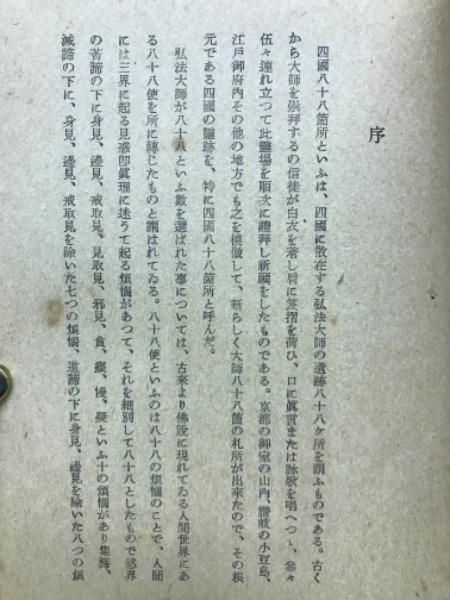 序
四國八十八箇所といふは、四國に散在する弘法大師の遺跡八十八ケ所を謂ふものである。古く
から大師を崇拜するの信徒が白衣を着し肩に笈摺を荷ひ、口に眞言または詠歌を唱へつゝ、參々
伍々連れ立つて此靈場を順次に禮拜し祈願をしたものである。京都の御室の山内、讃岐の小豆島、
江戸御府内その他の地方でも之を模倣して、新らしく大師八十八箇の札所が出來たので、その根
元である四國の靈跡を、特に四國八十八箇所と呼んだ。
弘法大師が八十八といふ數を選ばれた事については、古來より佛説に現れてゐる人間世界にあ
る八十八使を所に轉じたものと謂はれてゐる。八十八使といふのは八十八の煩惱のことで、人間
には三界に起る見惑卽眞理に迷うて起る煩惱があつて、それを細別して八十八としたもので慾界
の苦諦の下に身見、邊見、戒取見、見取見、邪見、貪、癡、慢、疑といふ十の煩惱があり集諦、
滅諦の下に、身見、邊見、戒取見を除いた七つの煩惱、道諦の下に身見、邊見を除いた八つの煩